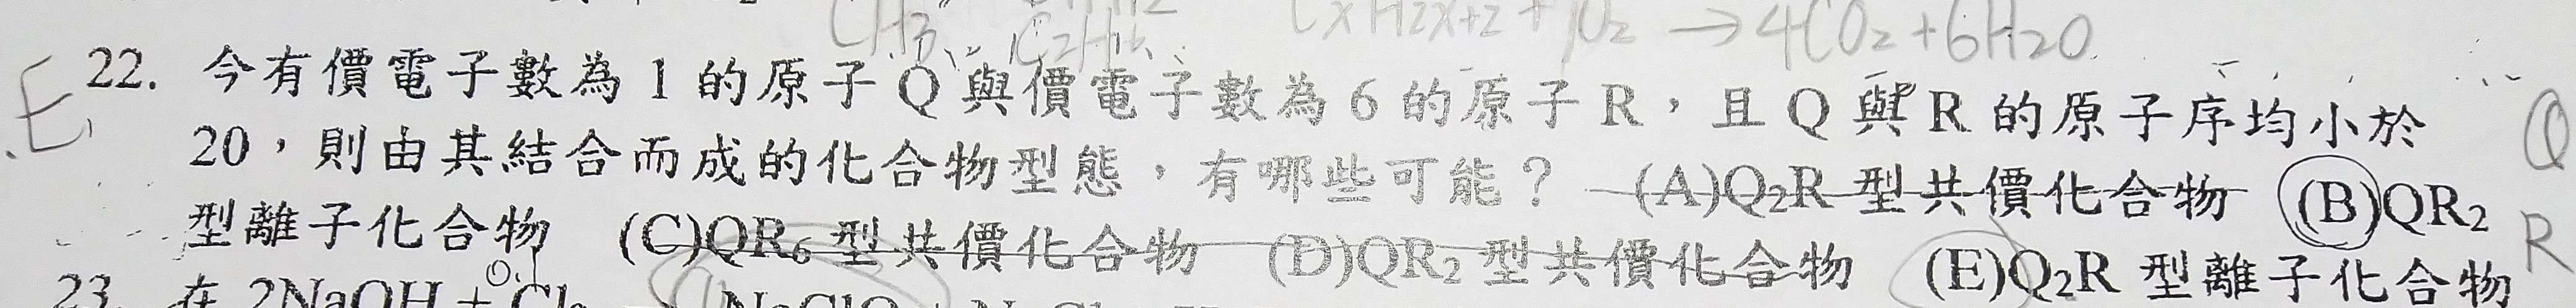 CxH2x+2 + O2 → 4CO2+6H2O
E 22. 今有價電子數為 1 的原子 Q 與價電子數為 6 的原子 R，且 Q 與 R 的原子序均小於 Q
20，則由其結合而成的化合物型態，有哪些可能？ (A)Q2R 型共價化合物 (B)QR2
型離子化合物 (C)QR6 型共價化合物 (D)QR2 型共價化合物 (E)Q2R 型離子化合物 R
23. 在 2NaOH +